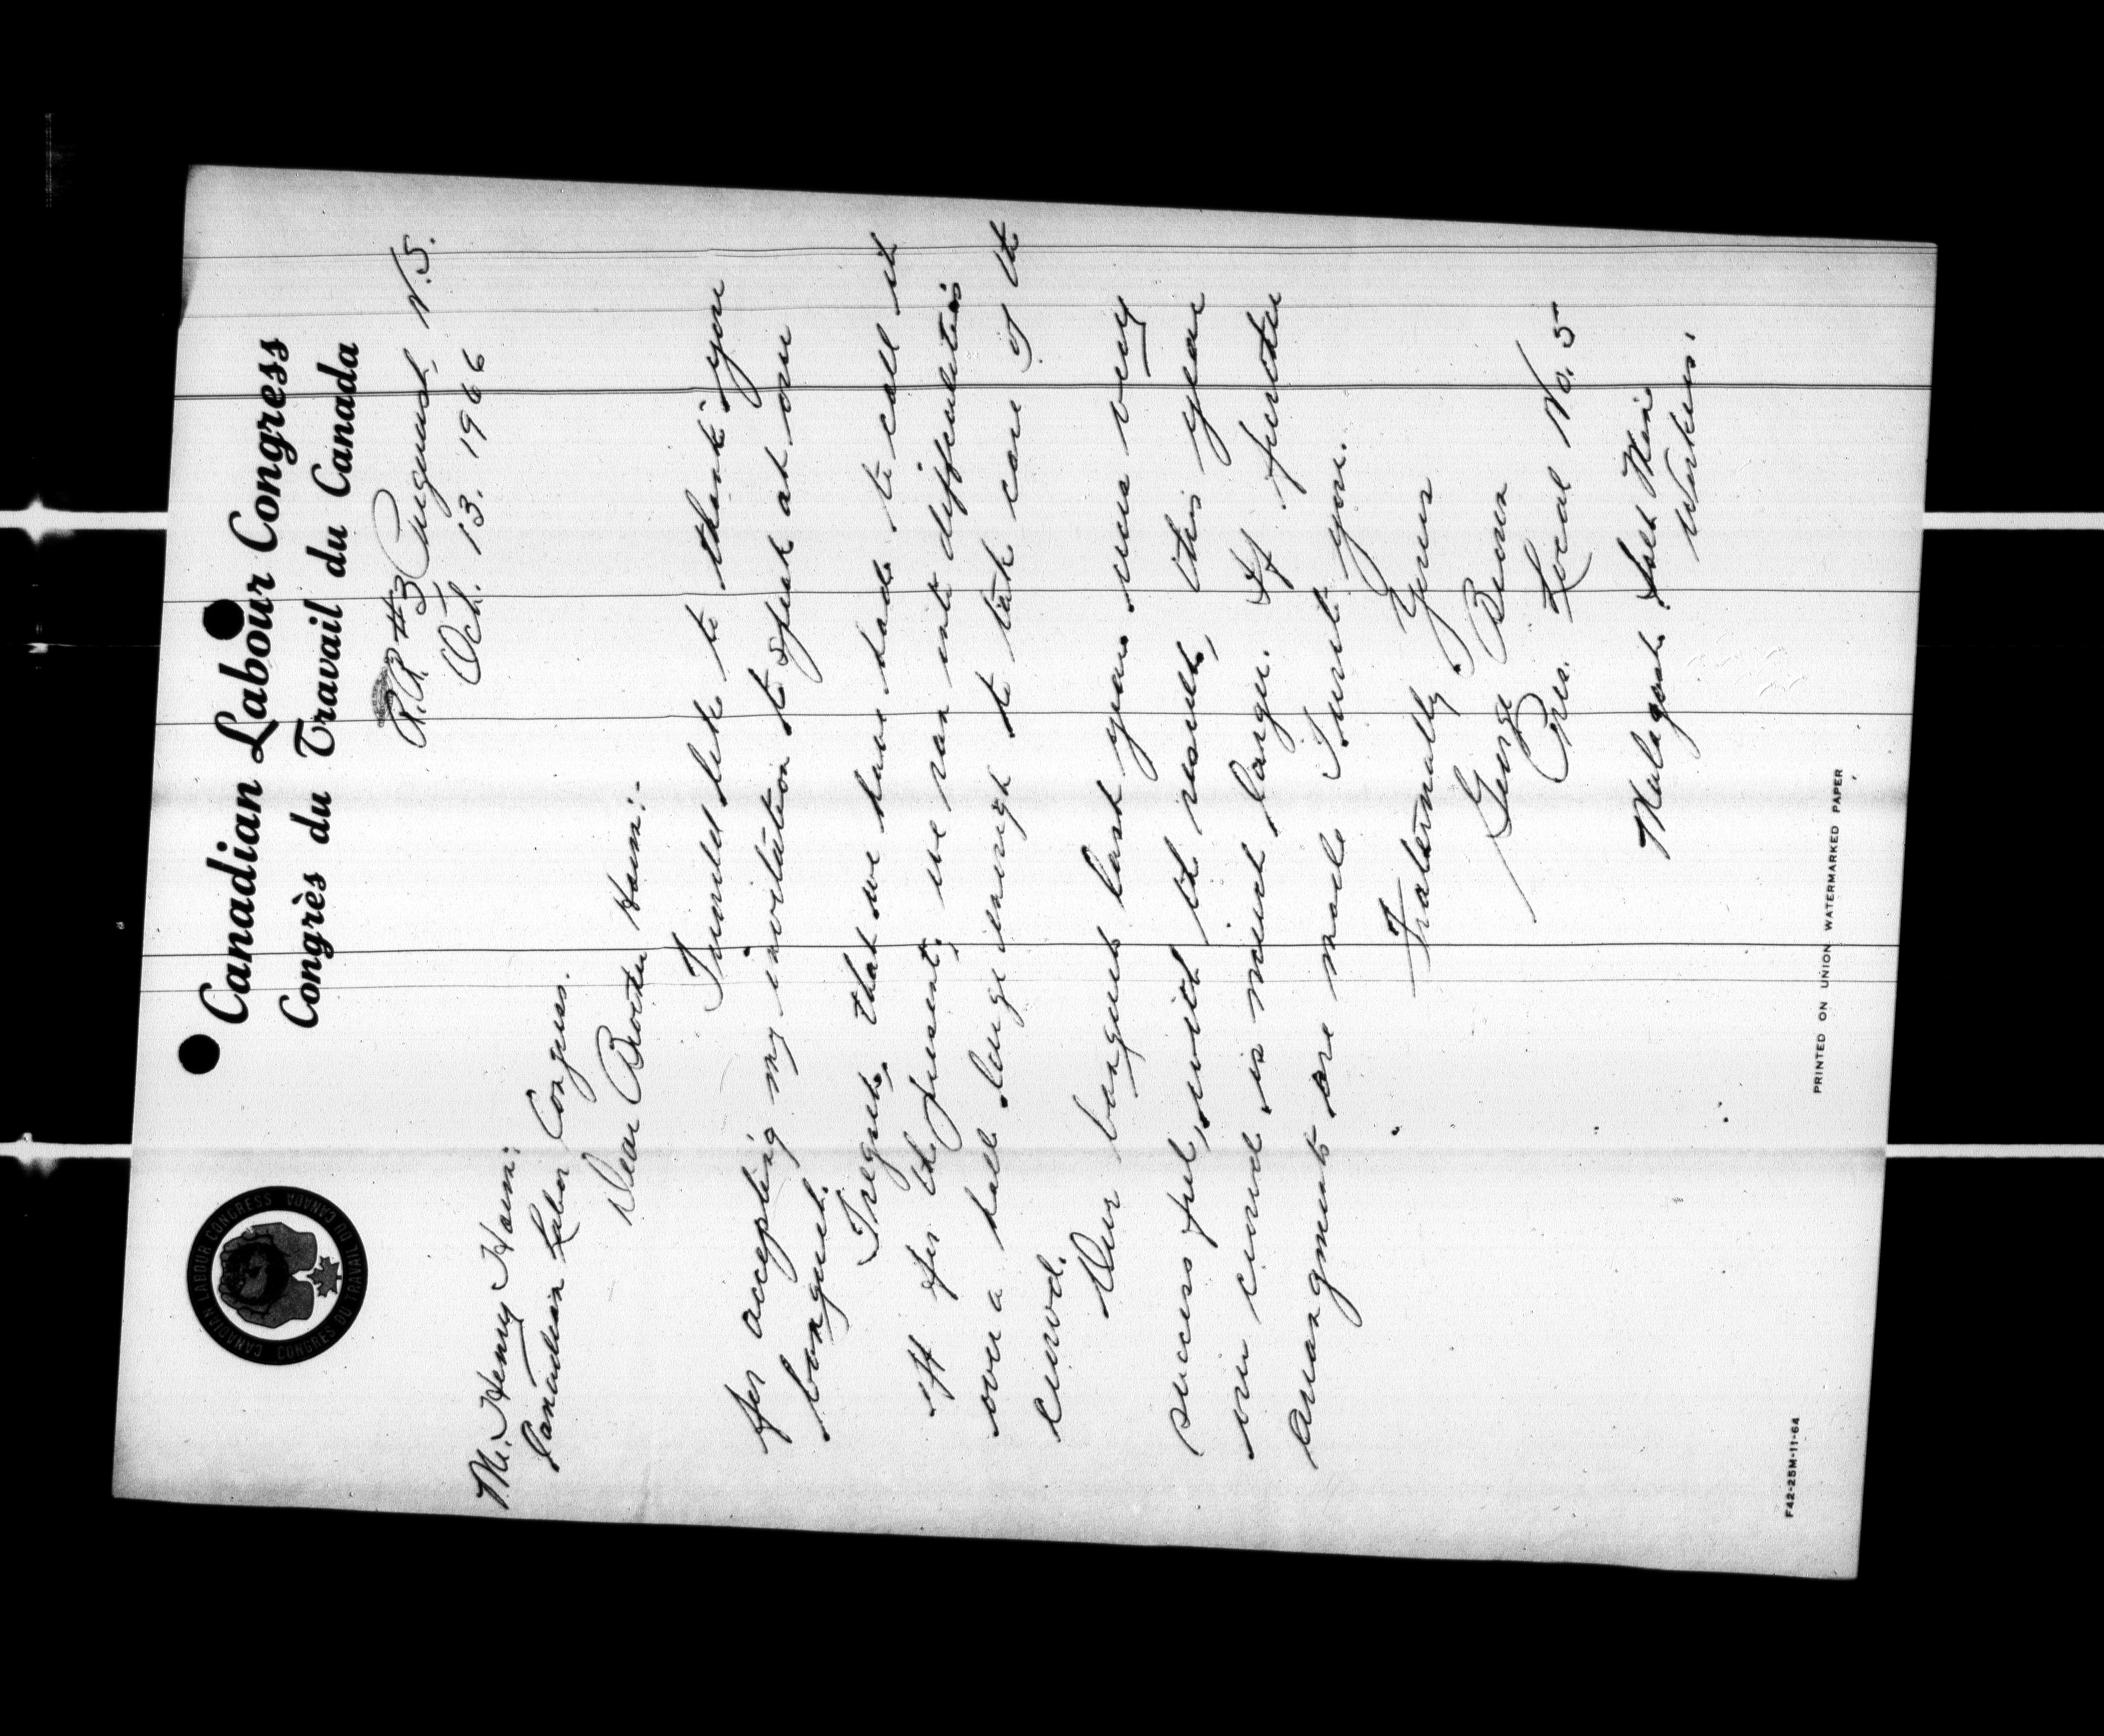 Canadian Labour Congress
Congrès du Travail du Canada
CANADIAN LABOUR CONGRESS CANADA
CONGRES DU TRAVAIL DU CANADA
R.R #3 Pugwash N.S.
Oct. 13. 1966
Mr. Henry Harm:
Canadian Labor Congress.
Dear Brother Harm:
I would like to thank you
for accepting my invitation to speak at our
banquet.
I regret, that we have had to call it
off for the present, we ran into difficulties
over a hall large enough to take care of the
crowd.
Our banquet last year was very
success ful, with the results, this year
our crowd is much larger. If further
arrangments are made I will you.
Fraternally Yours
George
Pres. Local No. 5
Malagash Salt Mine
Workers.
PRINTED ON UNION WATERMARKED PAPER
F42-25M-11-64